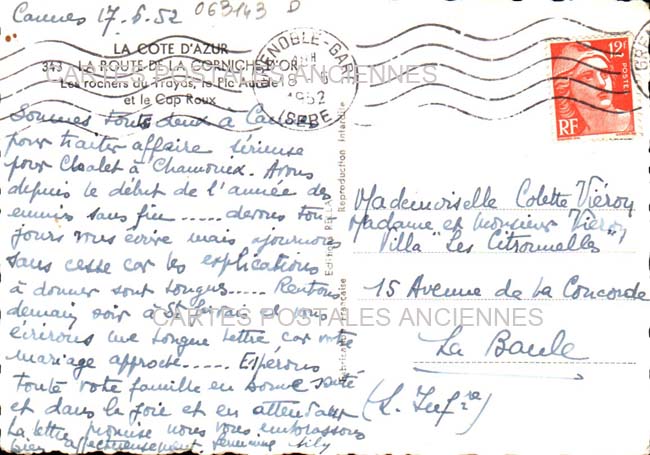 Cannes 17.6.52
063143 D
LA COTE D'AZUR
343 - LA ROUTE DE LA CORNICHE D'OR
Les rochers du Trayas, le Pic Aurele
et le Cap Roux
GRENOBLE-GARE
18
1952
ISERE
12F
POSTES
RF
CARTES POSTALES ANCIENNES
Sommes tous deux à Cannes
pour traiter affaire sérieuse
pour Chalet à Chamonix. Avons
depuis le début de l'année des
ennuis sans fin ..... devons tou
jours vous écrire mais ajournons
sans cesse car les explications
à donner sont longues ..... Rentrons
demain soir à St Gervais et vous
écrirons une longue lettre, car votre
mariage approche ..... Espérons
toute votre famille en bonne santé
et dans la joie et en attendant
La lettre promise nous vous embrassons
bien affectueusement
Editions RELLA
Reproduction Interdite
Fabrication Française
Mademoiselle Colette Viéron
Madame et Monsieur Viéron
Villa "Les Citronnelles"
15 Avenue de La Concorde
CARTES POSTALES ANCIENNES
La Baule
(L. Infre)